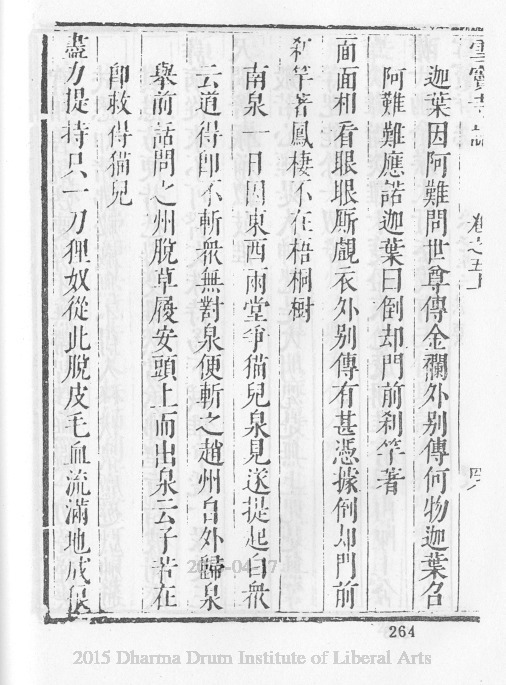 雲竇寺誌 卷之五上
迦葉因阿難問世尊傳金襴外別傳何物迦葉召
阿難難應諾迦葉曰倒却門前刹竿著
面面相看眼眼厮覷衣外別傳有甚憑據倒却門前
刹竿著鳳棲不在梧桐樹
南泉一日因東西兩堂爭猫兒泉見遂提起白衆
云道得卽不斬衆無對泉便斬之趙州自外歸泉
舉前話問之州脫草履安頭上而出泉云子若在
卽救得猫兒
盡力提持只一刀狸奴從此脫皮毛血流滿地成
264
2015 Dharma Drum Institute of Liberal Arts